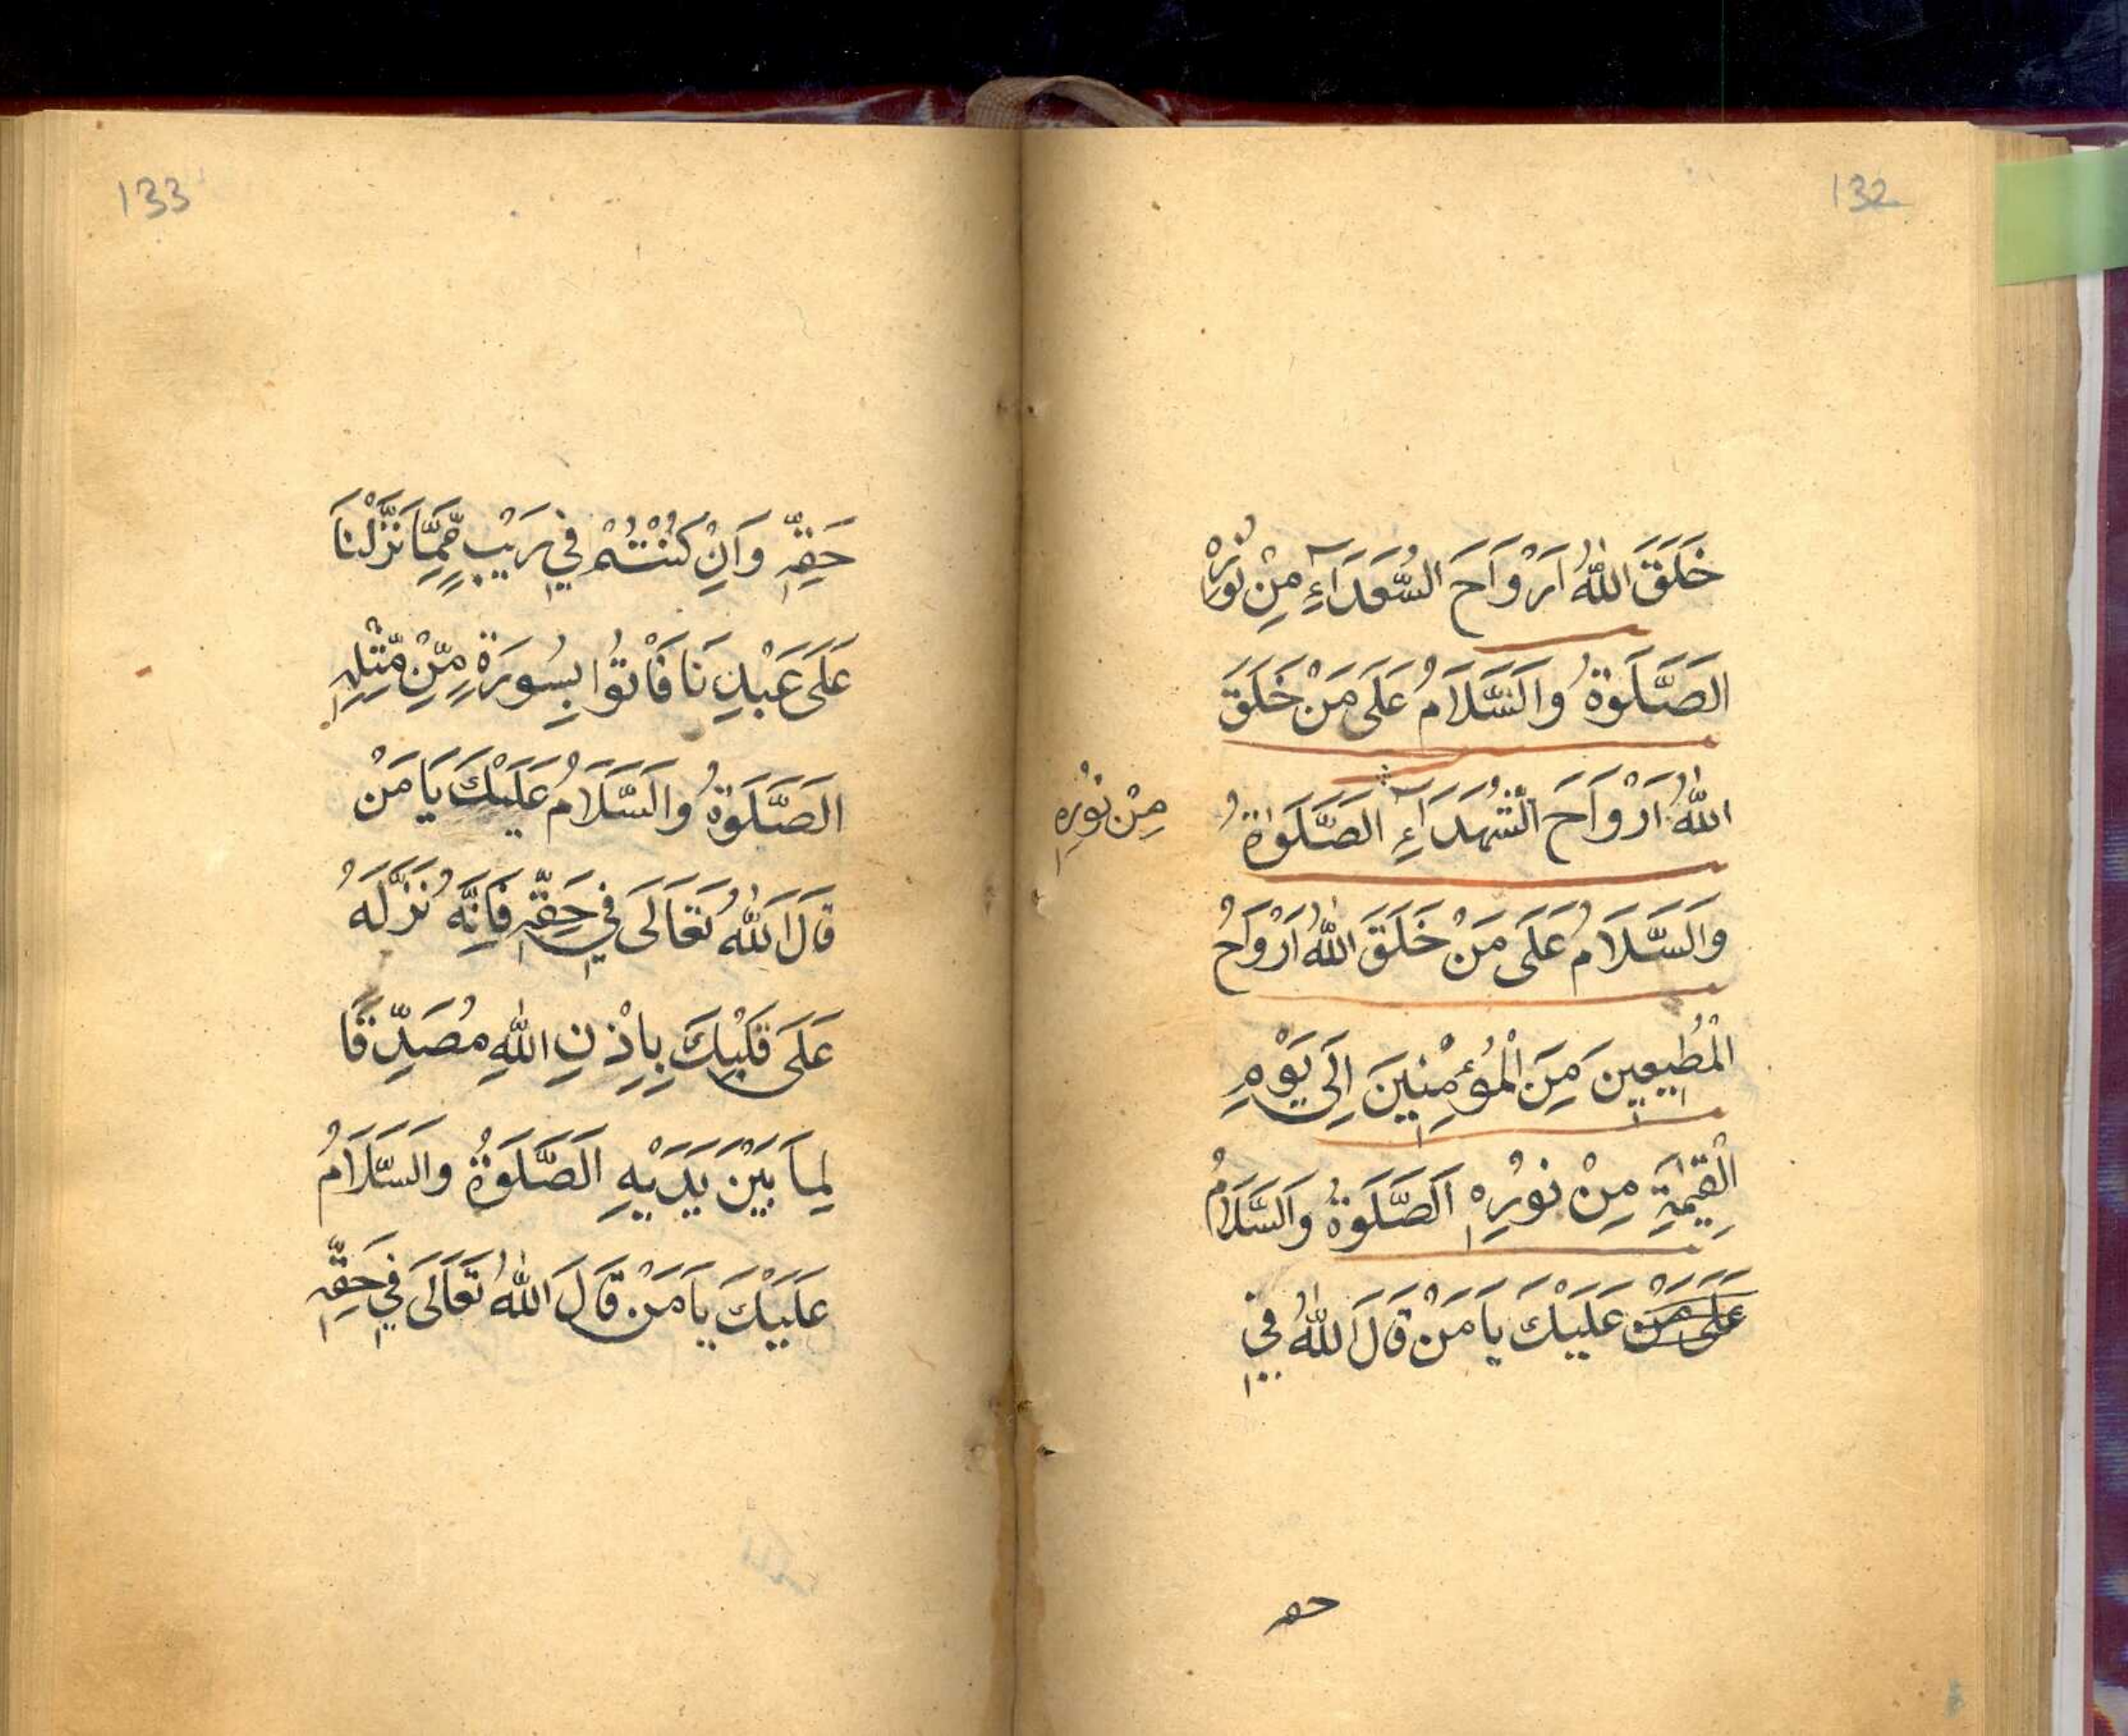 132
خَلَقَ اللّٰهُ اَرْوَاحَ السُّعَدَآءِ مِنْ نُوْرِهٖ
الصَّلَوٰةُ وَالسَّلَامُ عَلَى مَنْ خَلَقَ
اللّٰهُ اَرْوَاحَ الشُّهَدَآءِ الصَّلَوٰةُ
مِنْ نُوْرِهٖ
وَالسَّلَامُ عَلَى مَنْ خَلَقَ اللّٰهُ اَرْوَاحُ
الْمُطِيعِينَ مِنَ الْمُؤْمِنِينَ اِلَى يَوْمِ
الْقِيٰمَةِ مِنْ نُوْرِهٖ اَلصَّلَوٰةُ وَالسَّلَامُ
عَلَى مَنْ عَلَيْكَ يَا مَنْ قَالَ اللّٰهُ فِي
حقه
133
حَقِّهٖ وَاِنْ كُنْتُمْ فِي رَيْبٍ مِّمَّا نَزَّلْنَا
عَلَى عَبْدِنَا فَاْتُوا بِسُورَةٍ مِّنْ مِّثْلِهٖ
الصَّلَوٰةُ وَالسَّلَامُ عَلَيْكَ يَا مَنْ
قَالَ اللّٰهُ تَعَالَى فِي حَقِّهٖ فَاِنَّهُ نَزَّلَهُ
عَلَى قَلْبِكَ بِاِذْنِ اللّٰهِ مُصَدِّقًا
لِمَا بَيْنَ يَدَيْهِ الصَّلَوٰةُ وَالسَّلَامُ
عَلَيْكَ يَا مَنْ قَالَ اللّٰهُ تَعَالَى فِي حَقِّهٖ